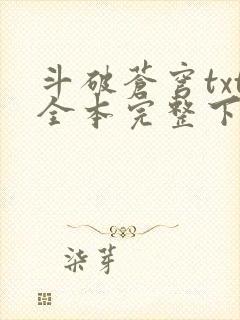 斗破蒼穹txt
全本完整下
柒芽